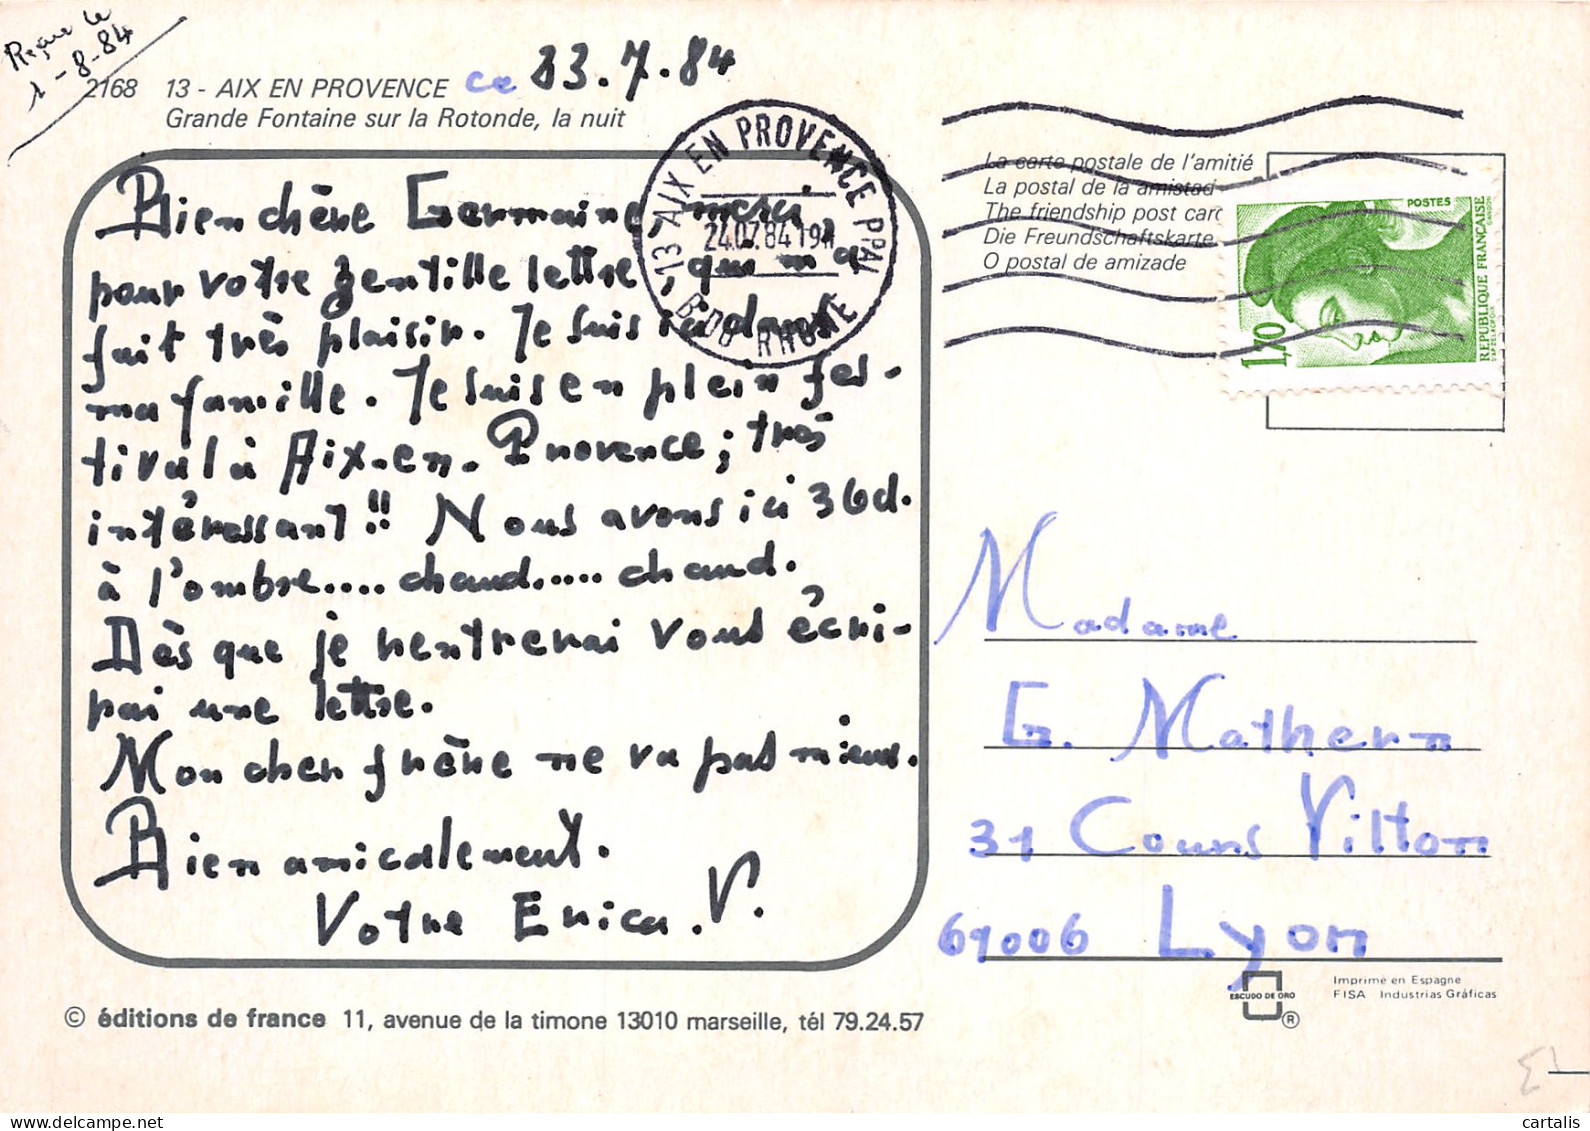 Reçue le
1-8-84
2168 13 - AIX EN PROVENCE ce 23.7.84
Grande Fontaine sur la Rotonde, la nuit
13 AIX EN PROVENCE PPAL
24.07.84 19H
B DU RHONE
Bien chère Germaine, merci
pour votre gentille lettre, qui m'a
fait très plaisir. Je suis ici dans
ma famille. Je suis en plein fes-
tival à Aix-en-Provence; très
intéressant!! Nous avons ici 36d.
à l'ombre.... chaud..... chaud.
Dès que je rentrerai vous écri-
rai une lettre.
Mon cher frère ne va pas mieux.
Bien amicalement.
Votre Erica.V.
La carte postale de l'amitié
La postal de la amistad
The friendship post card
Die Freundschaftskarte
O postal de amizade
POSTES
REPUBLIQUE FRANÇAISE
1,70
Madame
G. Mathern
31 Cours Vitton
69006 Lyon
© éditions de france 11, avenue de la timone 13010 marseille, tél 79.24.57
ESCUDO DE ORO
®
Imprimé en Espagne
FISA Industrias Gráficas
cartalis